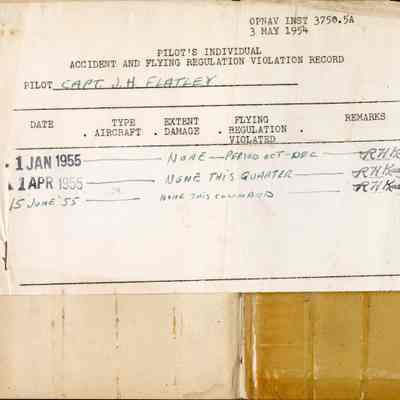 OPNAV INST 3750.5A
3 MAY 1954
PILOT'S INDIVIDUAL
ACCIDENT AND FLYING REGULATION VIOLATION RECORD
PILOT CAPT. J.H. FLATLEY
DATE . TYPE AIRCRAFT . EXTENT DAMAGE . FLYING REGULATION VIOLATED . REMARKS
1 JAN 1955 NONE - PERIOD OCT-DEC
1 APR 1955 NONE THIS QUARTER
15 JUNE '55 NONE THIS COMMAND